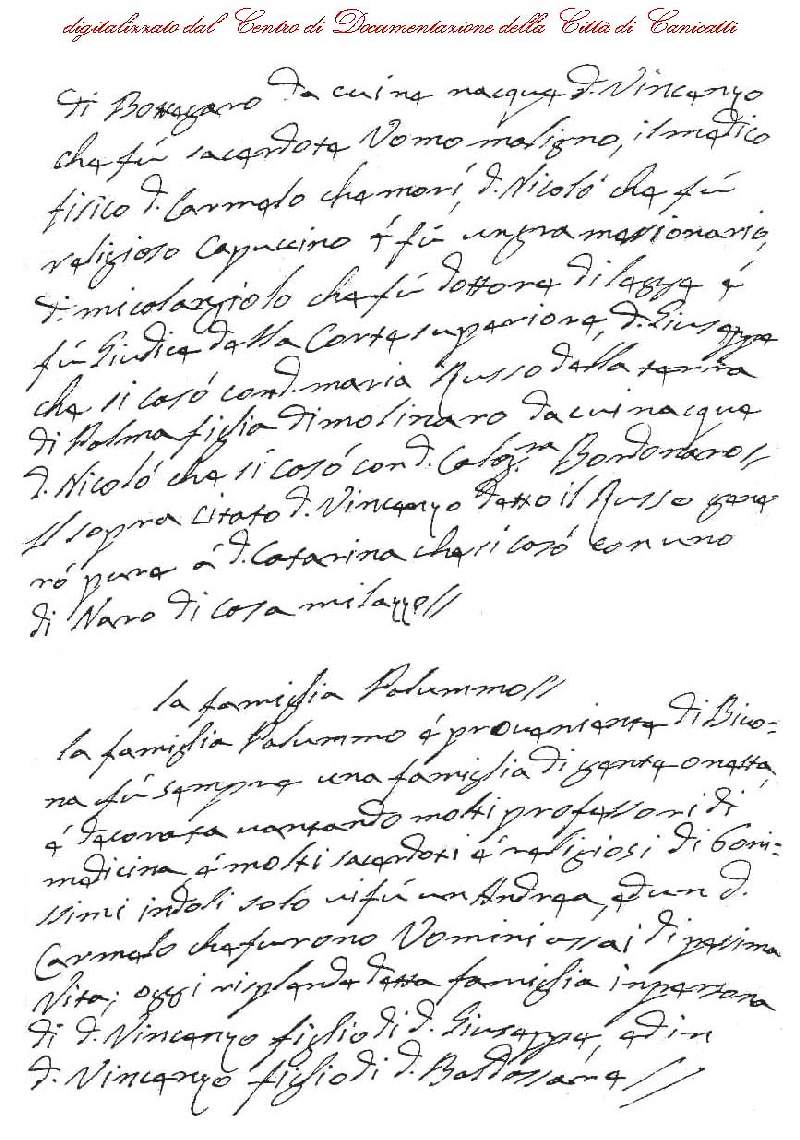 digitalizzato dal Centro di Documentazione della Città di Canicattì
di Bottegaro da cui ne nacque d. Vincenzo
che fú sacerdote Vomo maligno, il medico
fisico d. Carmelo che morí, d. Nicoló che fú
religioso Capuccino é fú un gra mesionario,
d. micolangiolo che fú dottore di legge é
fú Giudice della Corte superiore, d. Giuseppe
che si casó con d. maria Russo della terra
di Palma figlia di molinaro da cui nacque
d. Nicoló che si casó con d. Calog.ra Bordonaro//
Il sopra citato d. Vincenzo detto il Russo gene
ró pure á d. Catarina che si casó con uno
di Naro di casa milazzo//
la famiglia Palummo//
la famiglia Palummo é proveniente di Bivo=
na fú sempre una famiglia di gente onesta,
é decorata vantando molti professori di
medicina é molti sacerdoti é religiosi di boni=
ssimi indoli solo vi fú un Andrea, ed un d.
Carmelo che furono Vomini assai di pesima
Vita; oggi risplende detta famiglia in persona
di d. Vincenzo figlio di d. Giuseppe, ed in
d. Vincenzo figlio di d. Baldassare//